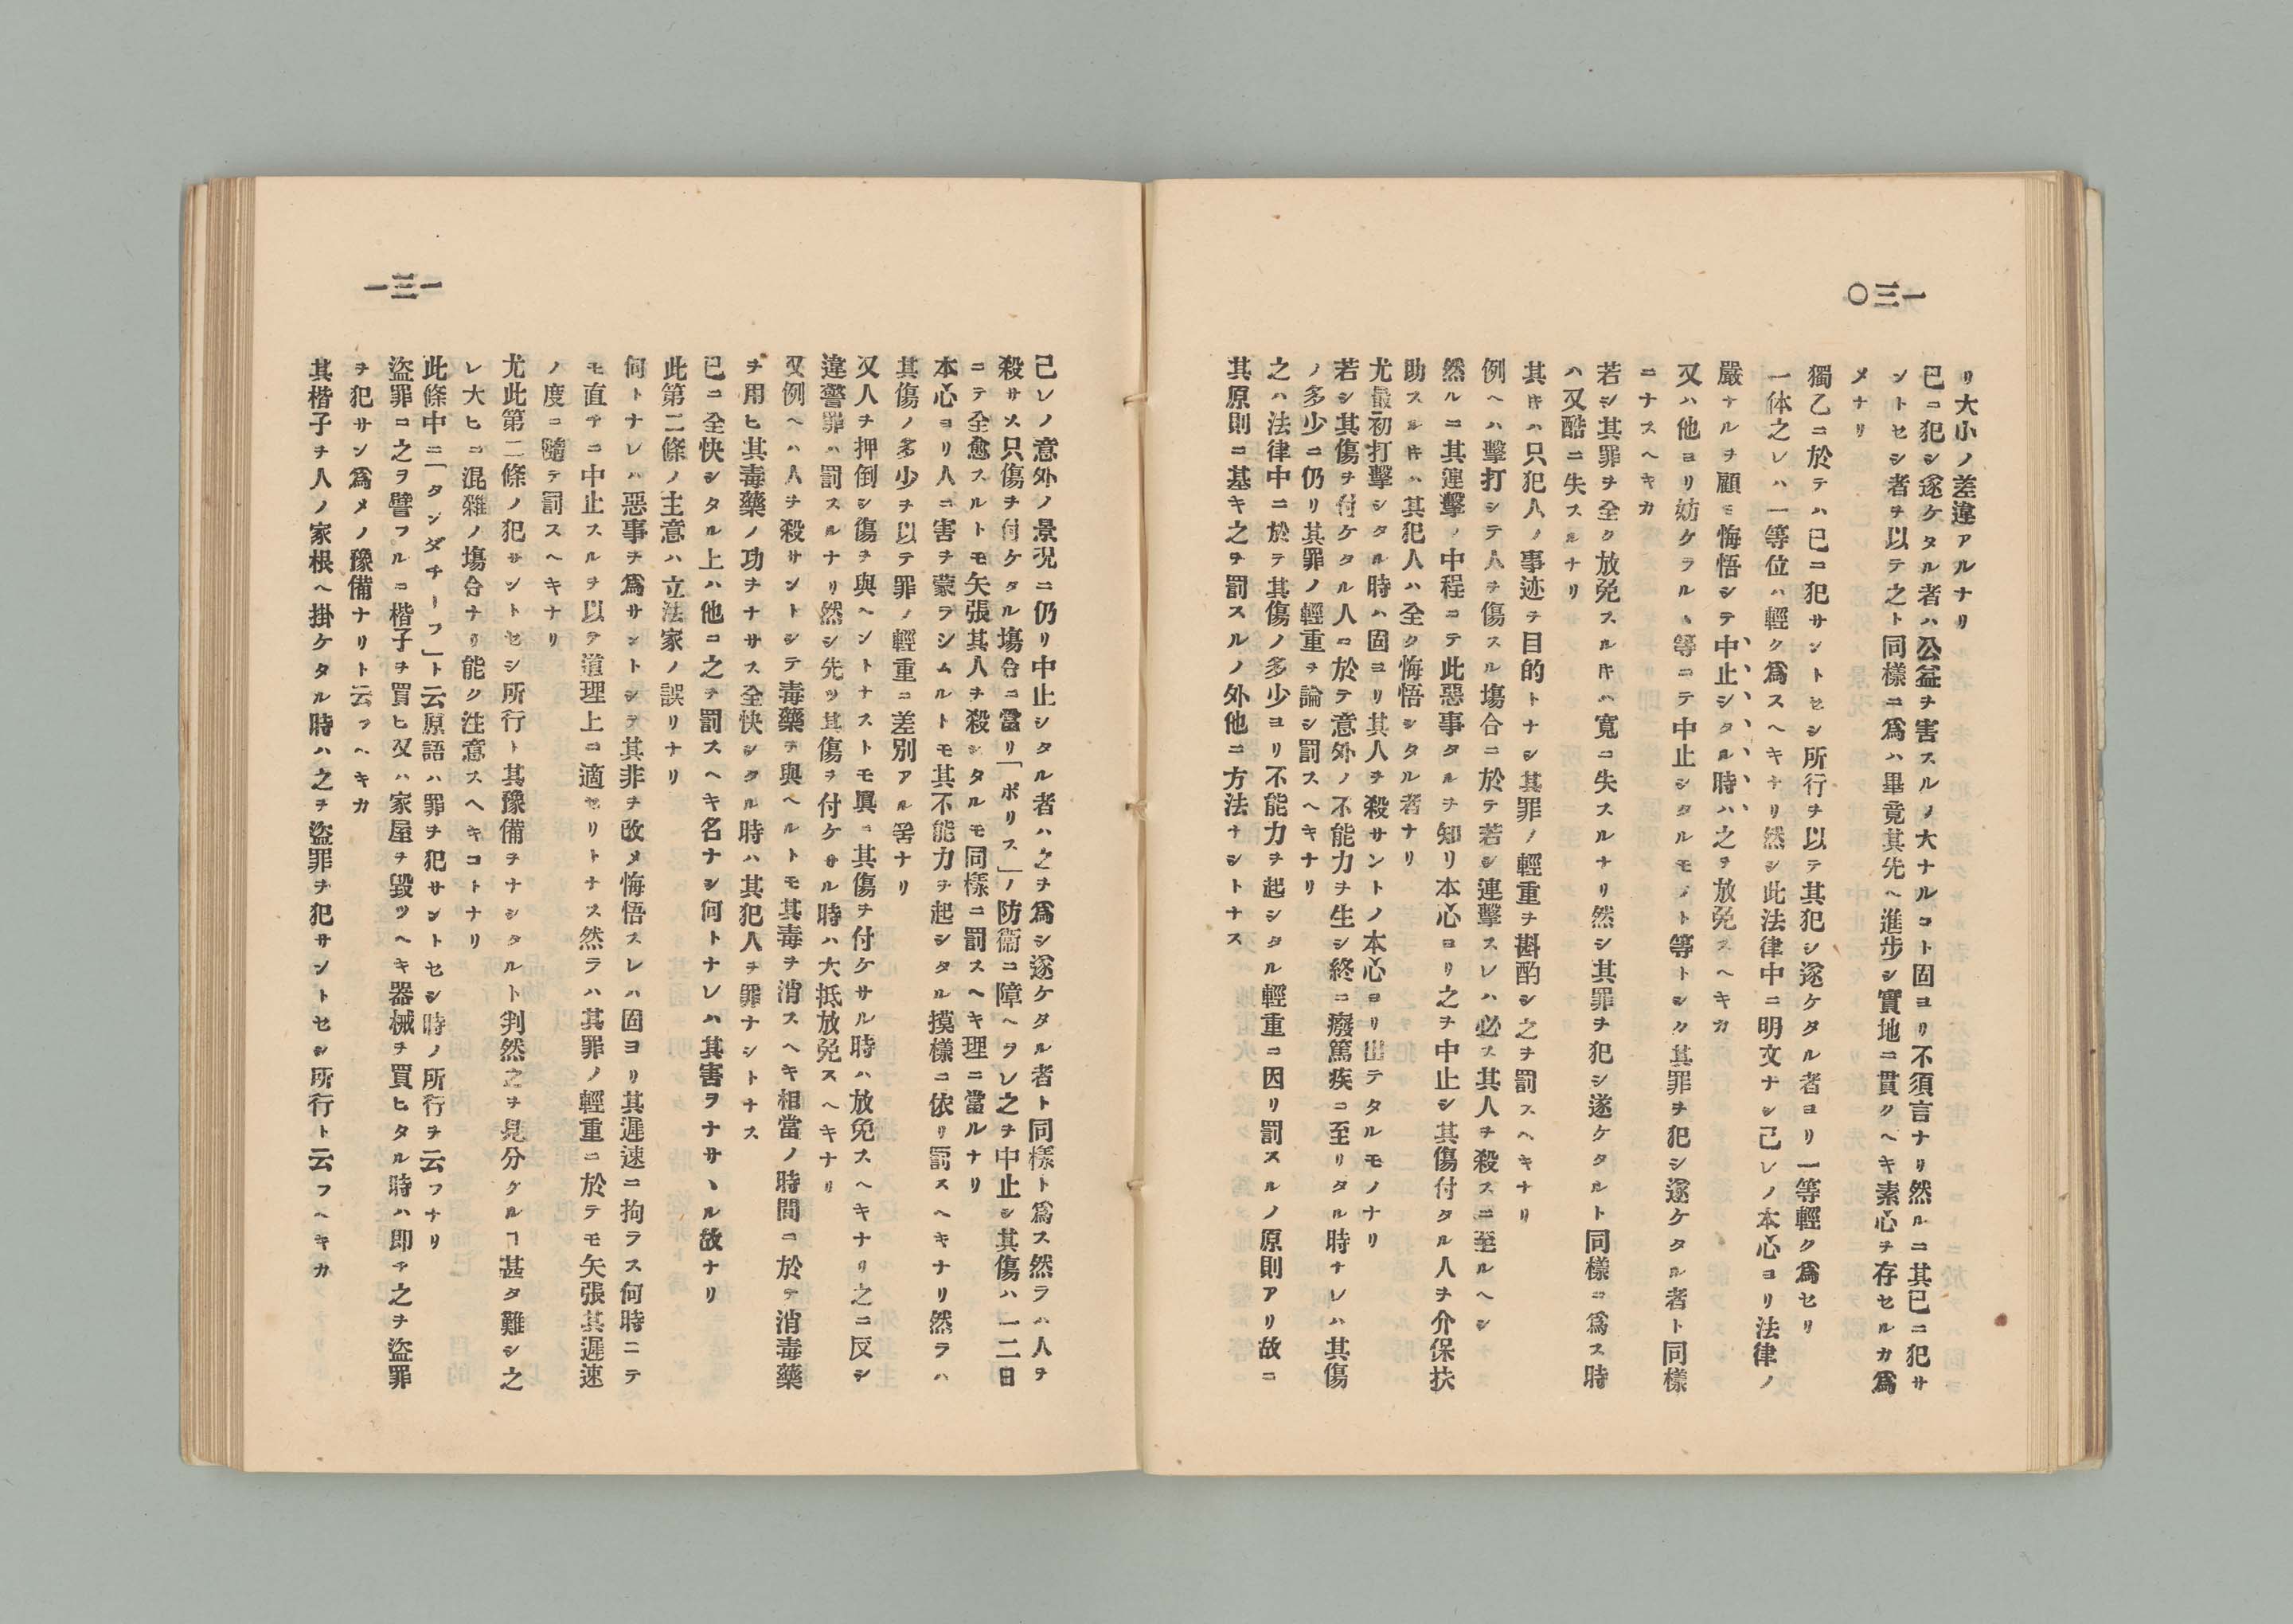 一三〇
リ大小ノ差違アルナリ
已ニ犯シ遂ケタル者ハ公益ヲ害スルノ大ナルコト固ヨリ不須言ナリ然ルニ其已ニ犯サ
ントセシ者ヲ以テ之ト同樣ニ爲ハ畢竟其先ヘ進步シ實地ニ貫クヘキ素心ヲ存セルカ爲
メナリ
獨乙ニ於テハ已ニ犯サントセシ所行ヲ以テ其犯シ遂ケタル者ヨリ一等輕ク爲セリ
一体之レハ一等位ハ輕ク爲スヘキナリ然シ此法律中ニ明文ナシ己レノ本心ヨリ法律ノ
嚴ナルヲ顧ミ悔悟シテ中止シタル時ハ之ヲ放免スヘキカ
又ハ他ヨリ妨ケラルヽ等ニテ中止シタルモノト等トシク其罪ヲ犯シ遂ケタル者ト同樣
ニナスヘキカ
若シ其罪ヲ全ク放免スルキハ寬ニ失スルナリ然シ其罪ヲ犯シ遂ケタルト同樣ニ爲ス時
ハ又酷ニ失スルナリ
其キハ只犯人ノ事迹ヲ目的トナシ其罪ノ輕重ヲ斟酌シ之ヲ罰スヘキナリ
例ヘハ擊打シテ人ヲ傷スル塲合ニ於テ若シ連擊スレハ必ス其人ヲ殺スニ至ルヘシ
然ルニ其連擊ノ中程ニテ此惡事タルヲ知リ本心ヨリ之ヲ中止シ其傷付タル人ヲ介保扶
助スルキハ其犯人ハ全ク悔悟シタル者ナリ
尤最初打擊シタル時ハ固ヨリ其人ヲ殺サントノ本心ヨリ出テタルモノナリ
若シ其傷ヲ付ケタル人ニ於テ意外ノ不能力ヲ生シ終ニ癈篤疾ニ至リタル時ナレハ其傷
ノ多少ニ仍リ其罪ノ輕重ヲ論シ罰スヘキナリ
之ハ法律中ニ於テ其傷ノ多少ヨリ不能力ヲ起シタル輕重ニ因リ罰スルノ原則アリ故ニ
其原則ニ基キ之ヲ罰スルノ外他ニ方法ナシトナス
一三一
己レノ意外ノ景況ニ仍リ中止シタル者ハ之ヲ爲シ遂ケタル者ト同樣ト爲ス然ラハ人ヲ
殺サス只傷ヲ付ケタル塲合ニ當リ「ポリス」ノ防衛ニ障ヘラレ之ヲ中止シ其傷ハ一二日
ニテ全愈スルトモ矢張其人ヲ殺シタルモ同樣ニ罰スヘキ理ニ當ルナリ
本心ヨリ人ニ害ヲ蒙ラシムルトモ其不能力ヲ起シタル摸樣ニ依リ罰スヘキナリ然ラハ
其傷ノ多少ヲ以テ罪ノ輕重ニ差別アル筈ナリ
又人ヲ押倒シ傷ヲ與ヘントナストモ眞ニ其傷ヲ付ケサル時ハ放免スヘキナリ之ニ反シ
違警罪ハ罰スルナリ然シ先ツ其傷ヲ付ケサル時ハ大抵放免スヘキナリ
又例ヘハ人ヲ殺サントシテ毒藥ヲ與ヘルトモ其毒ヲ消スヘキ相當ノ時間ニ於テ消毒藥
ヲ用ヒ其毒藥ノ功ヲナサス全快シタル時ハ其犯人ヲ罪ナシトナス
已ニ全快シタル上ハ他ニ之ヲ罰スヘキ名ナシ何トナレハ其害ヲナサヽル故ナリ
此第二條ノ主意ハ立法家ノ誤リナリ
何トナレハ惡事ヲ爲サントシテ其非ヲ改メ悔悟スレハ固ヨリ其遲速ニ拘ラス何時ニテ
モ直チニ中止スルヲ以テ道理上ニ適セリトナス然ラハ其罪ノ輕重ニ於テモ矢張其遲速
ノ度ニ隨テ罰スヘキナリ
尤此第二條ノ犯サントセシ所行ト其豫備ヲナシタルト判然之ヲ見分クルヿ甚タ難シ之
レ大ヒニ混雜ノ塲合ナリ能ク注意スヘキコトナリ
此條中ニ「タンダチーフ」ト云原語ハ罪ヲ犯サントセシ時ノ所行ヲ云フナリ
盜罪ニ之ヲ譬フルニ楷子ヲ買ヒ又ハ家屋ヲ毀ツヘキ器械ヲ買ヒタル時ハ即チ之ヲ盜罪
ヲ犯サン爲メノ豫備ナリト云フヘキカ
其楷子ヲ人ノ家根ヘ掛ケタル時ハ之ヲ盜罪ヲ犯サントセシ所行ト云フヘキカ